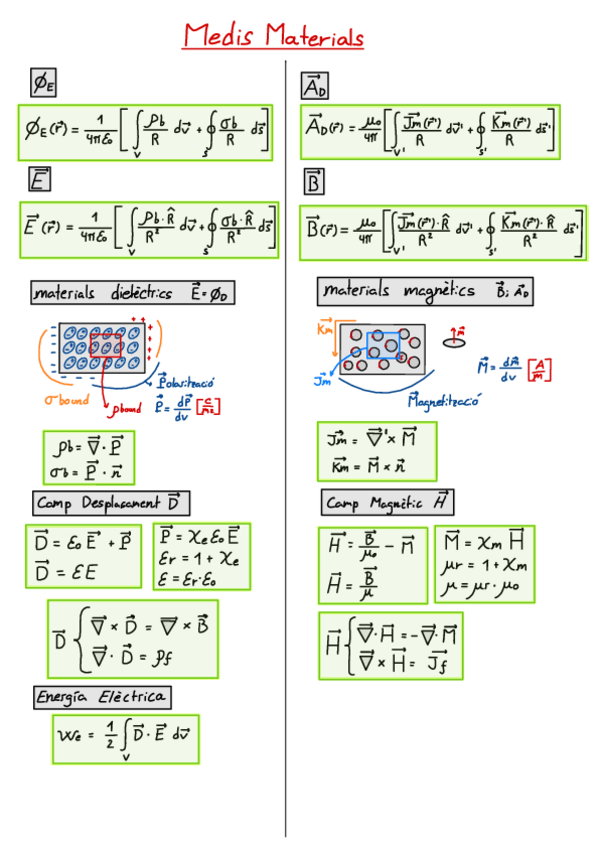 Medis Materials
ϕ_E
ϕ_E(r⃗) = 1/4πε₀ [ ∫_V ρb/R dv⃗ + ∮_S σb/R ds⃗ ]
E⃗
E⃗(r⃗) = 1/4πε₀ [ ∫_V ρb·R̂/R² dv⃗ + ∮_S σb·R̂/R² ds⃗ ]
materials dielèctrics E⃗ = ϕ_D
Polarització
σ bound
ρ bound
P⃗ = dP⃗/dv
ρb = ∇⃗ · P⃗
σb = P⃗ · n⃗
Camp Desplaçament D⃗
D⃗ = ε₀ E⃗ + P⃗
D⃗ = ε E
P⃗ = χe ε₀ E⃗
εr = 1 + χe
ε = εr · ε₀
D⃗ { ∇⃗ × D⃗ = ∇⃗ × B⃗
∇⃗ · D⃗ = ρf
Energía Elèctrica
We = 1/2 ∫_V D⃗ · E⃗ dv⃗
A⃗_D
A⃗_D(r⃗) = μ₀/4π [ ∫_V' J⃗m(r⃗')/R dv⃗' + ∮_S' K⃗m(r⃗')/R ds⃗' ]
B⃗
B⃗(r⃗) = μ₀/4π [ ∫_V' J⃗m(r⃗')·R̂/R² dv⃗' + ∮_S' K⃗m(r⃗')·R̂/R² ds⃗' ]
materials magnètics B⃗; A⃗_D
K⃗m
J⃗m
m⃗
M⃗ = dm⃗/dv [A/m]
Magnetització
J⃗m = ∇⃗' × M⃗
K⃗m = M⃗ × n⃗
Camp Magnètic H⃗
H⃗ = B⃗/μ₀ − M⃗
H⃗ = B⃗/μ
M⃗ = χm H⃗
μr = 1 + χm
μ = μr · μ₀
H⃗ { ∇⃗ · H⃗ = −∇⃗ · M⃗
∇⃗ × H⃗ = J⃗f